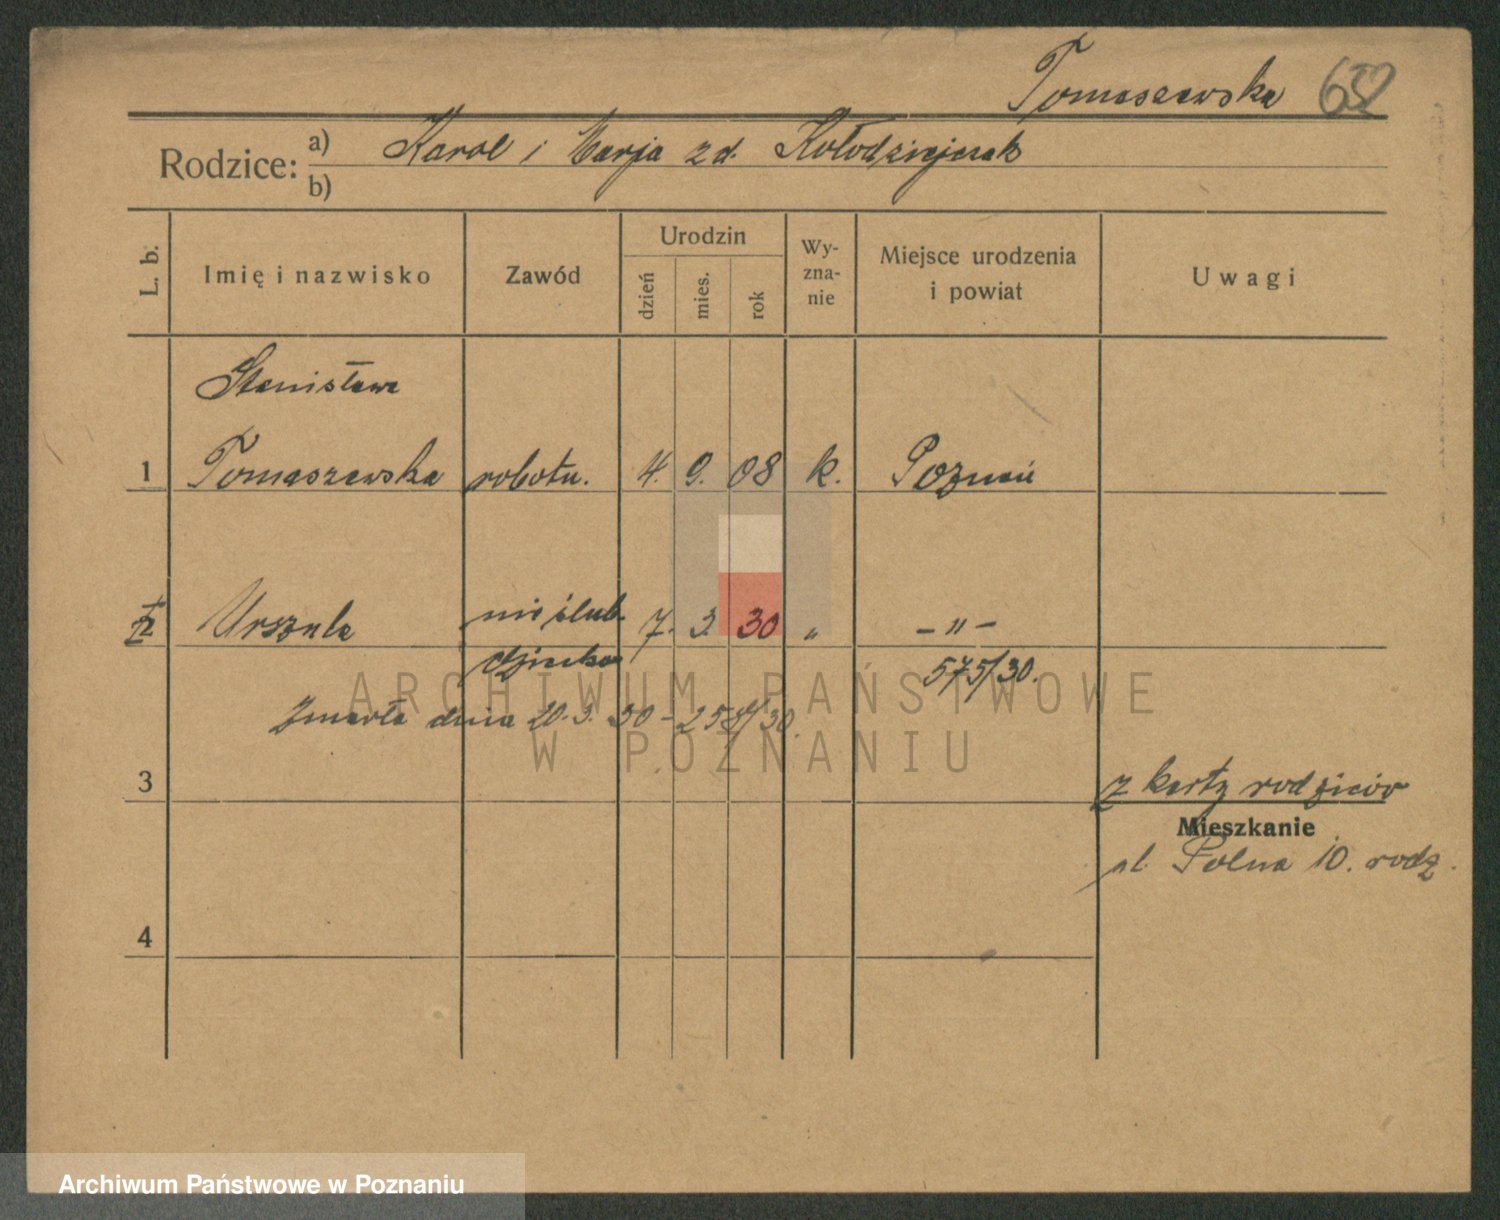 Tomaszewska 652
Rodzice: a) Karol i Marja zd. Kołodziejczak
b)
L. b. Imię i nazwisko Zawód Urodzin dzień mies. rok Wy-zna-nie Miejsce urodzenia i powiat Uwagi
Stanisława
1 Tomaszewska robotn. 4. 9. 08 k. Poznań
2 Urszula nieślub. 7. 3. 30 „ – " –
dziecko 575/30.
Zmarła dnia 20.3.30 – 258/30.
3 z karty rodziców
Mieszkanie
ul. Polna 10. rodz.
4
ARCHIWUM PAŃSTWOWE
W POZNANIU
Archiwum Państwowe w Poznaniu